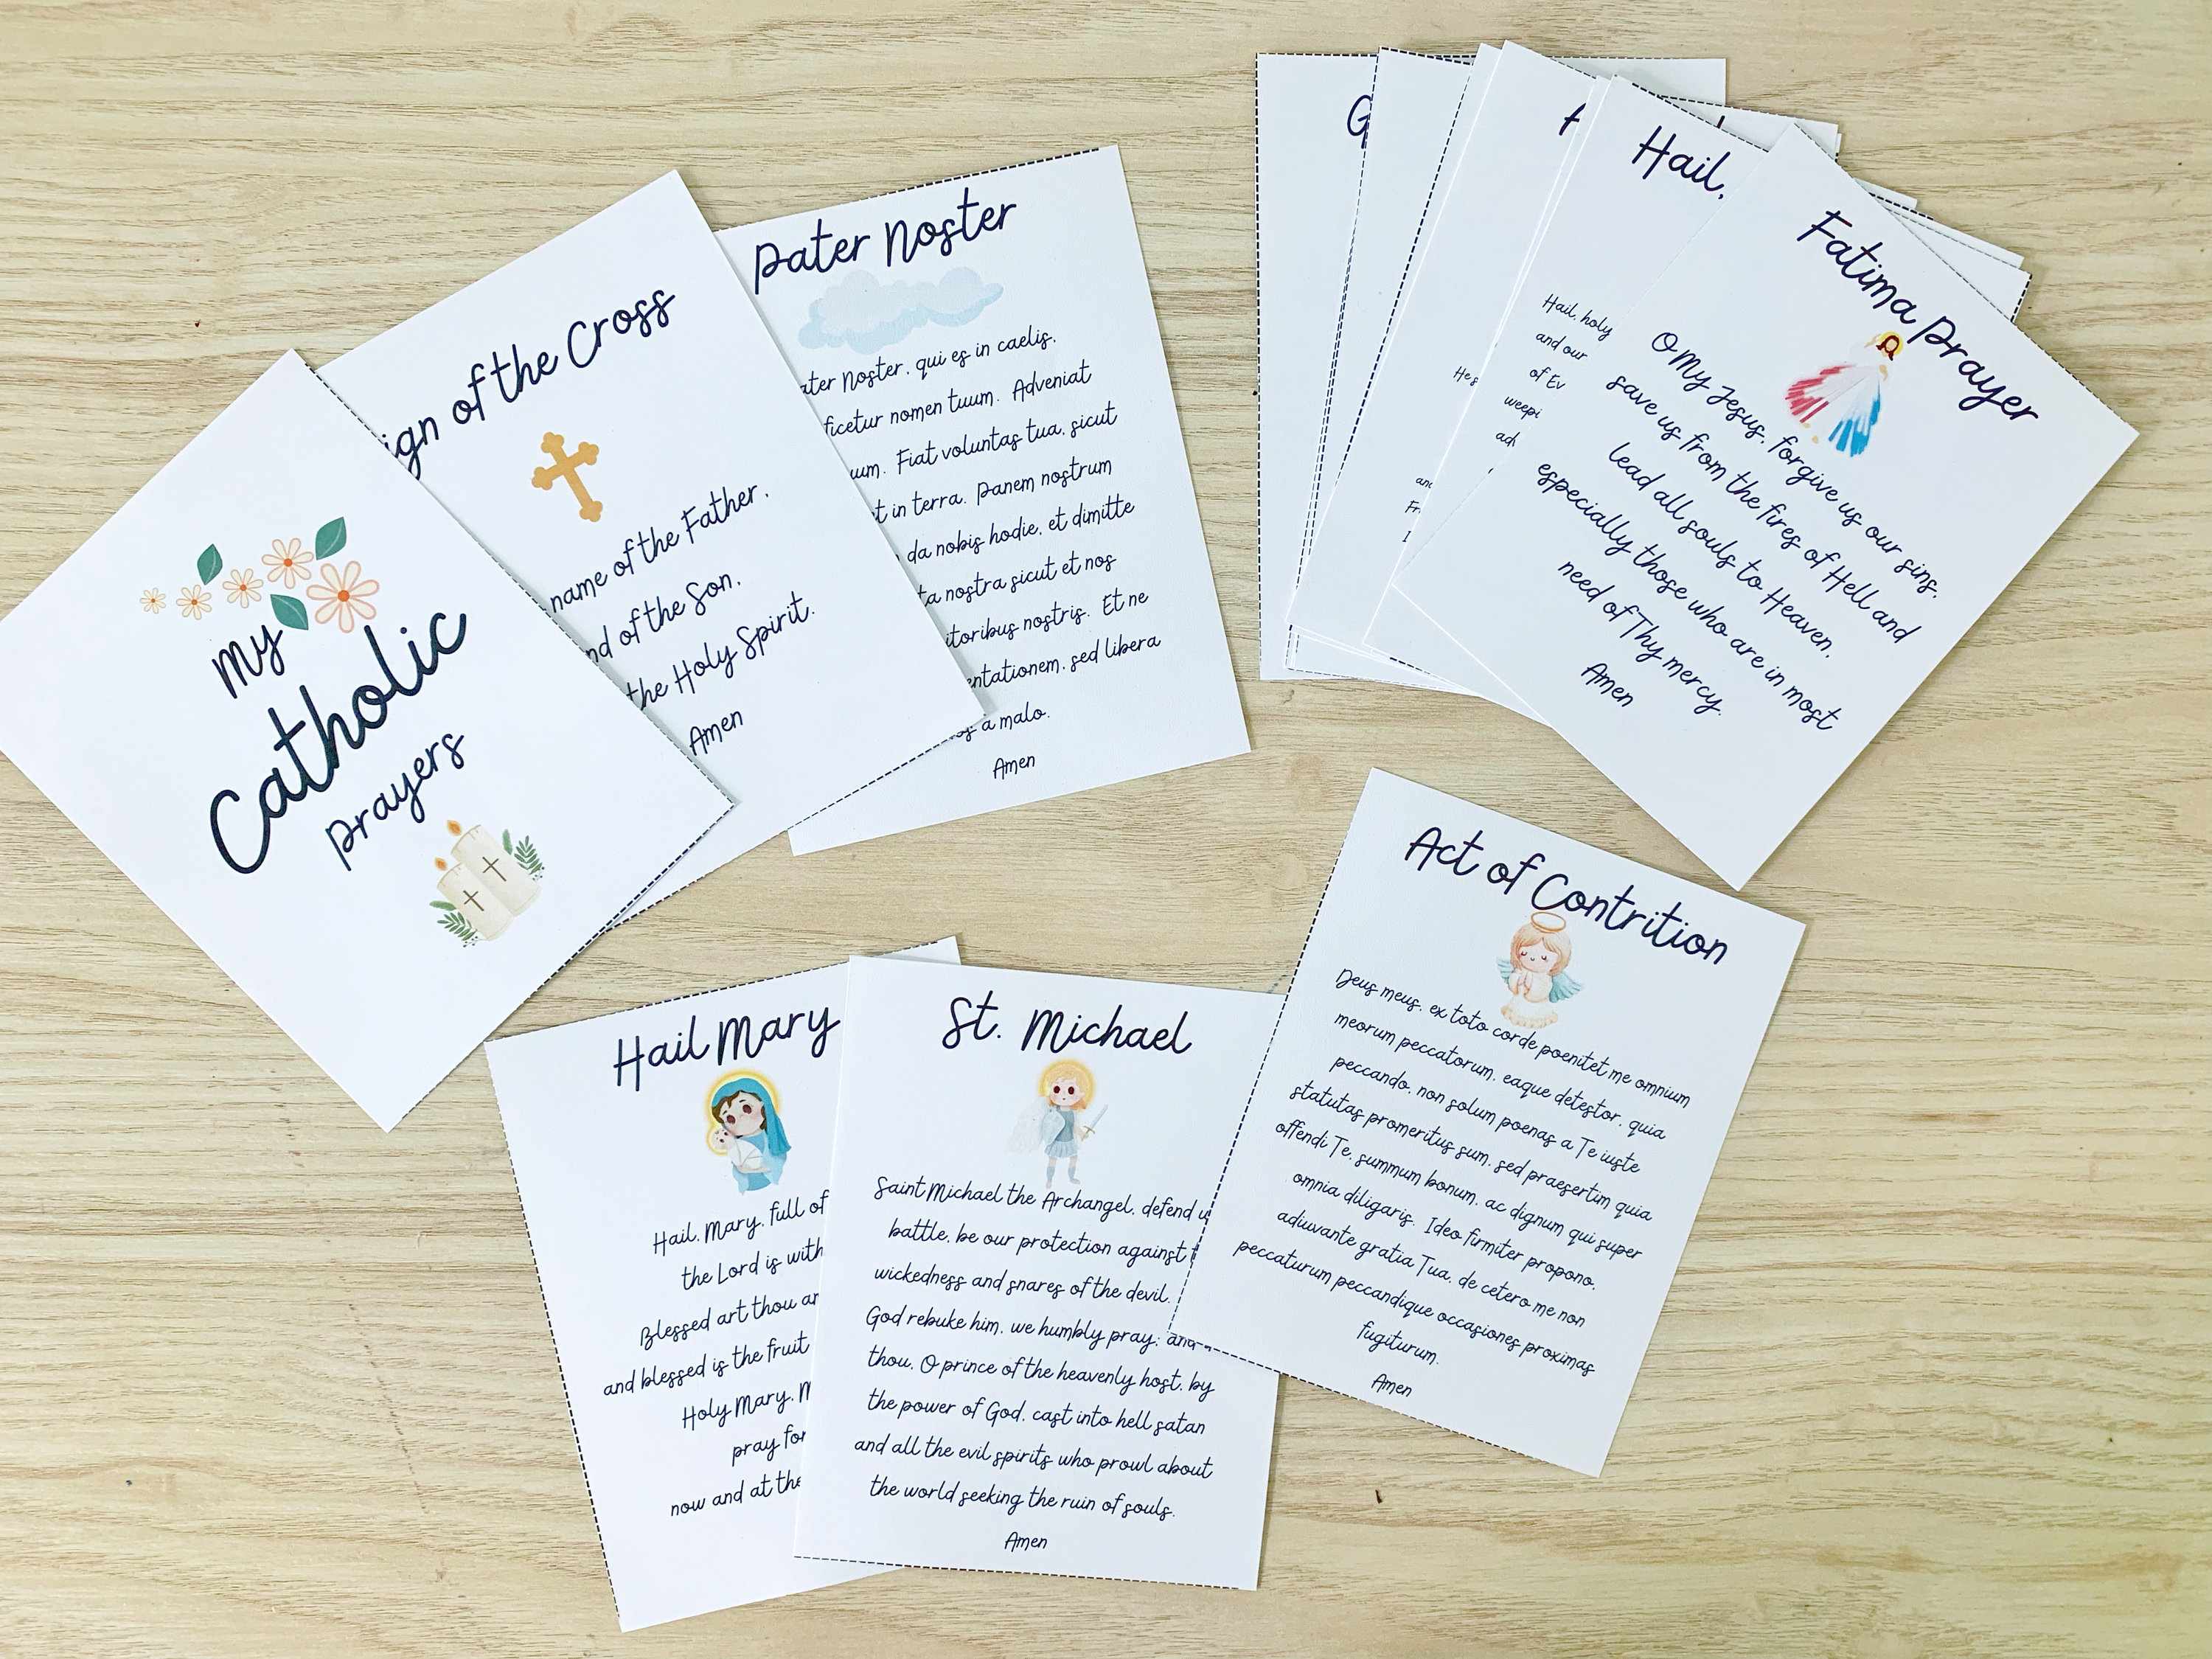 My
Catholic
prayers
ign of the Cross
name of the Father,
nd of the Son,
the Holy Spirit.
Amen
Pater Noster
ater Noster, qui es in caelis,
ficetur nomen tuum. Adveniat
uum. Fiat voluntas tua, sicut
t in terra. Panem nostrum
da nobis hodie, et dimitte
ta nostra sicut et nos
itoribus nostris. Et ne
entationem, sed libera
a malo.
Amen
G
A
Hail,
Hail, holy
and our
of Ev
weepi
Fatima Prayer
O My Jesus, forgive us our sins,
save us from the fires of Hell and
lead all souls to Heaven,
especially those who are in most
need of Thy mercy.
Amen
Hail Mary
Hail, Mary, full of
the Lord is with
Blessed art thou
and blessed is the fruit
Holy Mary, M
pray for
now and at the
St. Michael
Saint Michael the Archangel, defend u
battle, be our protection against t
wickedness and snares of the devil.
God rebuke him, we humbly pray; and
thou, O prince of the heavenly host, by
the power of God, cast into hell satan
and all the evil spirits who prowl about
the world seeking the ruin of souls.
Amen
Act of Contrition
Deus meus, ex toto corde poenitet me omnium
meorum peccatorum, eaque detestor, quia
peccando, non solum poenas a Te iuste
statutas promeritus sum, sed praesertim quia
offendi Te, summum bonum, ac dignum qui super
omnia diligaris. Ideo firmiter propono,
adiuvante gratia Tua, de cetero me non
peccaturum peccandique occasiones proximas
fugiturum.
Amen